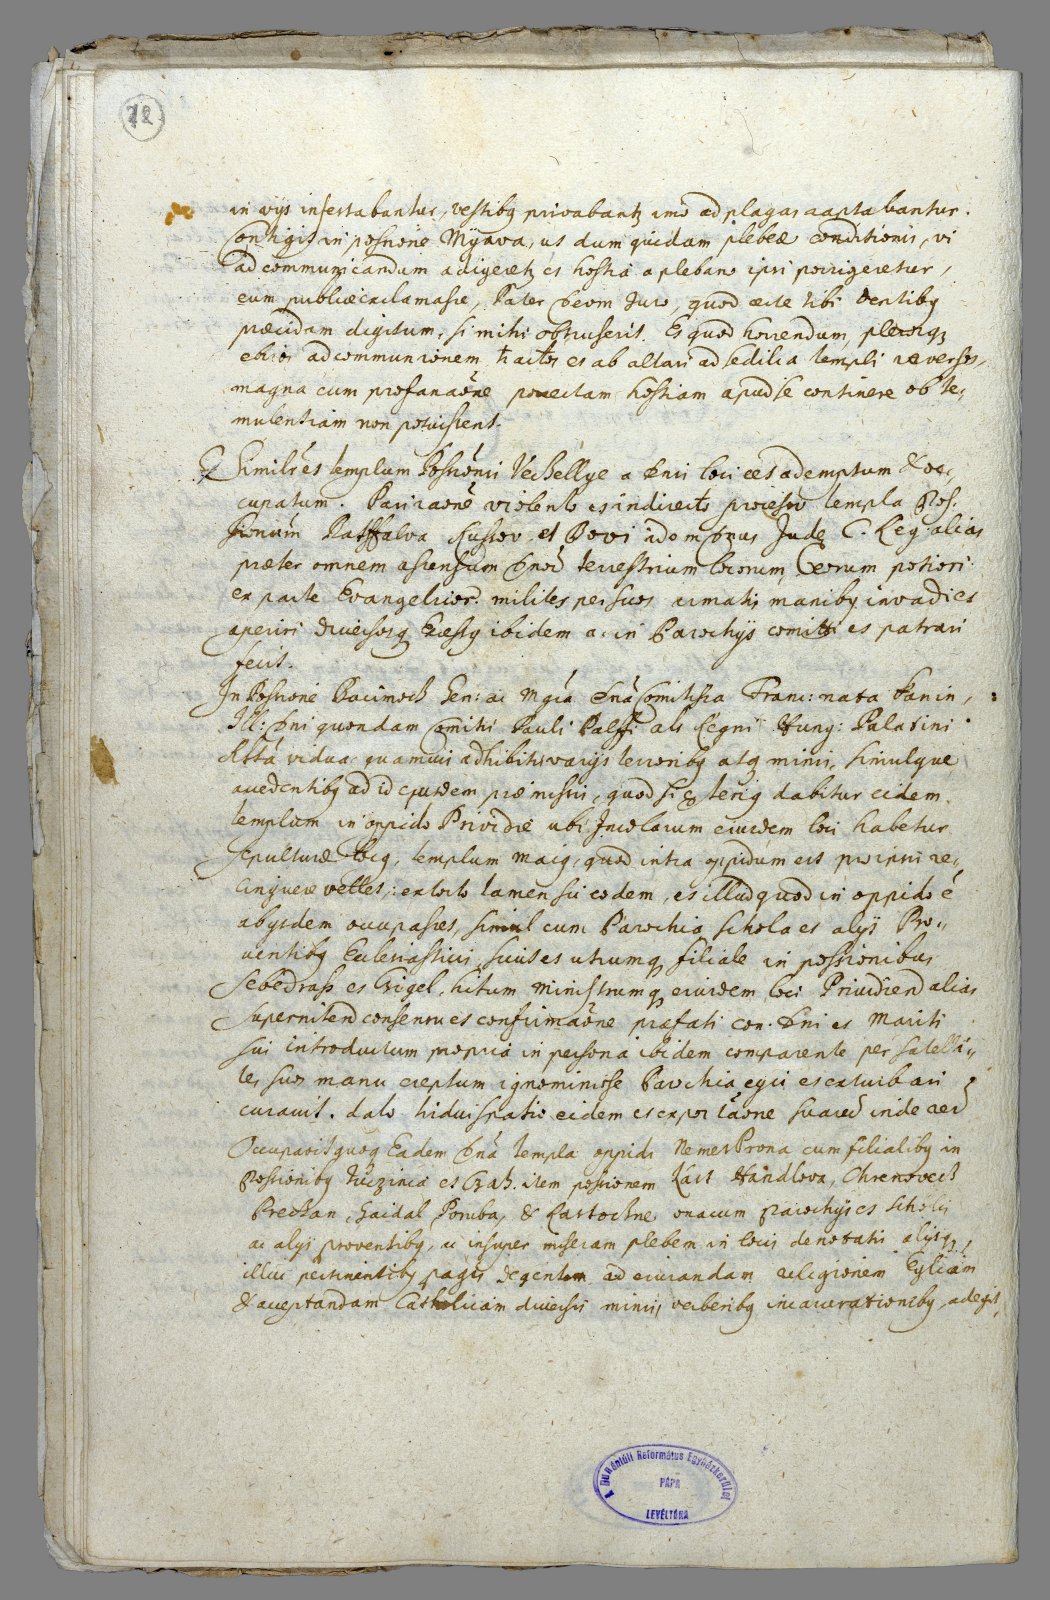 72
in vijs infestabantur, vestibq privabantq imo ad plagas aaptabantur.
Contigit in possnone Myava, ut dum quidam plebeæ conditionis, vi
ad communicandum adigeretq et hostia a plebano ipsi porrigeretur,
eum publice exclamasse, Pater Deom Juro, quod certe tibi dentibq
præcidam digitum, si mihi obtruseris. Et quod horrendum, plerosqq
ebrios ad communionem tractos et ab altari ad sedilia templi reversos,
magna cum profanaone porrectam hostiam apud se continere ob te,,
mulentiam non potuissent.
Similr et templum Possnonis Vecsellye a Dnii loci est ademptum & oc,,
cupatum. Pari raone violento et indirecto processu templa Pos,,
sionum Ratffalva Lussov et Povi idom Dnus Jude C. Reg: alias
præter omnem assensum Dnor terrestrium locorum eorum potiori
ex parte Evangelicor. milites per suos armatis manibq invadi et
aperiri diversosqq Exessq ibidem ac in Parochijs comitti et patrari
fecit.
In Possione Pacimoch Gen: ac Mgca Dna Comitissa Franc: nata Kanin,
Ill: Dni quondam Comitis Pauli Palffi als Regni Hung: Palatini
relicta vidua quamvis adhibitis varijs terroribq atqq minis, simulque
accedentibq ad id ejusdem promissis, quod si eq terig dabitur eidem
templum in oppido Prividie ubi Incolarum eiusdem loci habetur
sepulturæ locq, templum maiq, quod intra oppidum est pro ipsis re,,
linquere vellet,: extorto tamen sic eodem, et illud quod in oppido e
abysdem occupasset, simul cum Parochia schola et alijs Pro,,
ventibq Ecclesiasticis, sicut et utrumqq filiale in possionibus
Sebedrass et Cigel, hitum Ministrumqq eiusdem loci Prividiend alias
Supernitend consensu et confirmaone præfati con: Dni et Mariti
sui introductum propria in persona ibidem comparente per satelli,,
tes suos manu ereptum ignominiose Parochia ejici et exturbari
curavit. dato bidui spatio eidem et exportaone suarum inde rerum
Occupavit quoqq Eadem Dna templa oppidi NemetProna cum filialibq in
Possionibq Tuczinca et Czah. item possionem Ract Handlova, Chrenovech
Prechan, Gaidal Poruba, & Rastochne unacum Parochijs et scholis
ac alijs proventibq, ac insuper miseram plebem in locis denotatis alijsqq
illuc pertinentibq pagis degentem ad eiurandam religionem Eglicam
& acceptandam Catholicam diversis minis, verberibq incarcerationibq, adegit,
A Dunántúli Református Egyházkerület
PÁPA
LEVÉLTÁRA